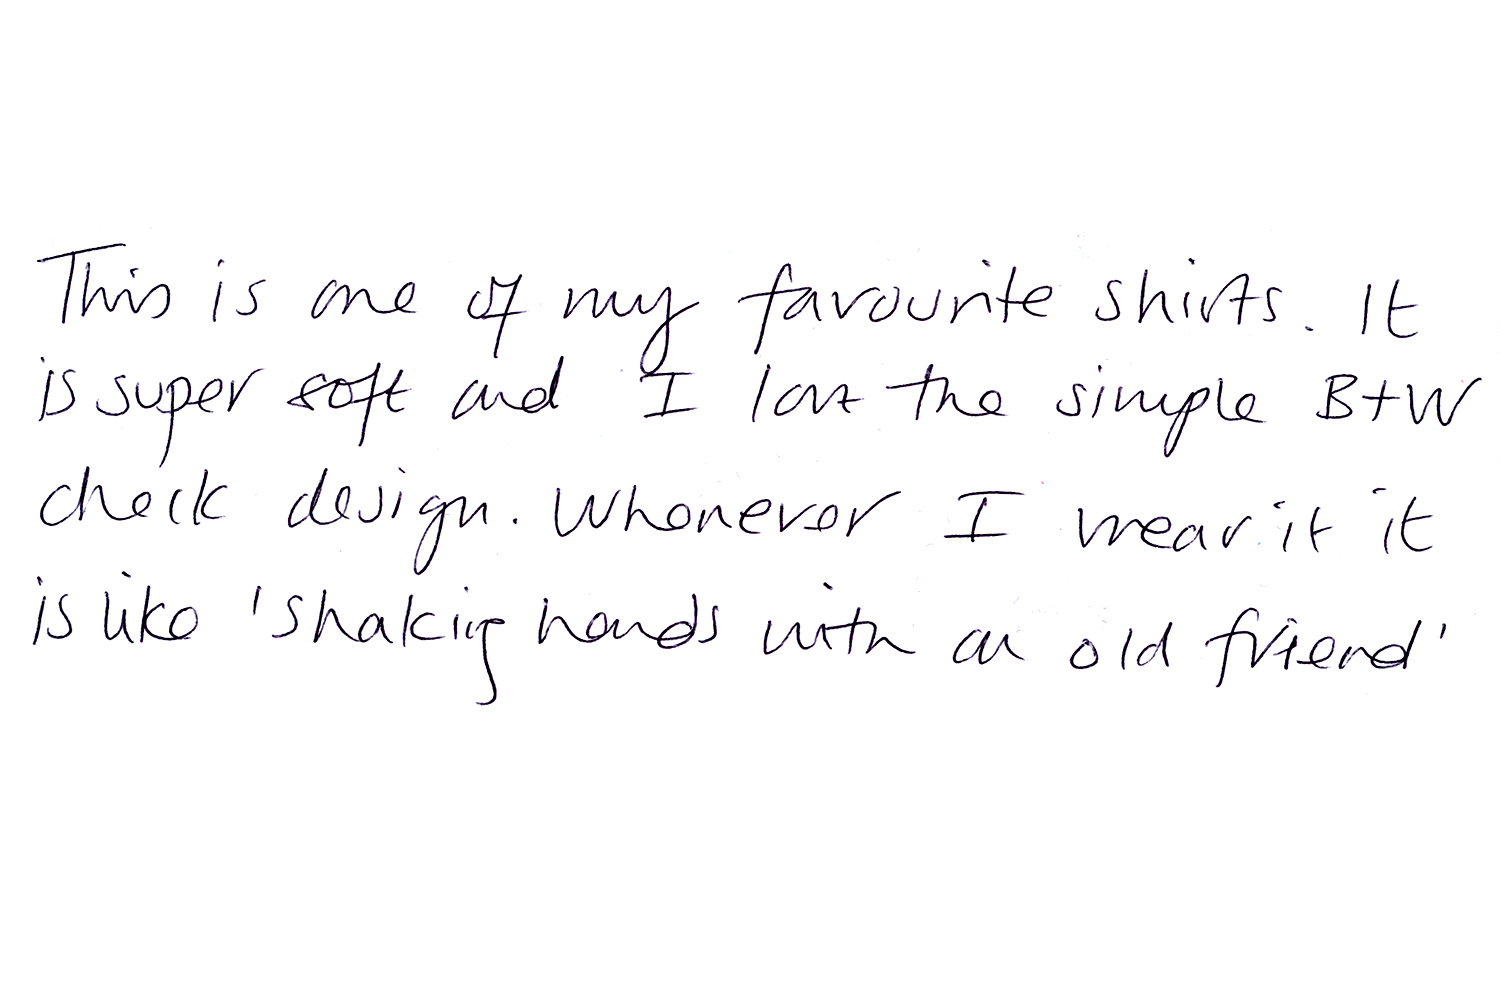 This is one of my favourite shirts. It
is super soft and I love the simple B+W
check design. Whenever I wear it it
is like 'shaking hands with an old friend'